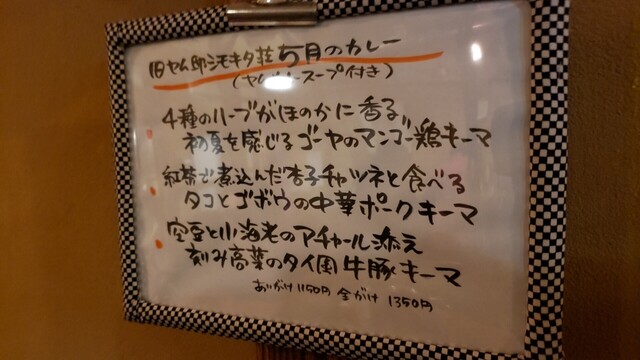 旧ヤム邸シモキタ荘5月のカレー
スープ付き)
4種のハーブがほのかに香る
初夏を感じるゴーヤのマンゴー鶏キーマ
紅茶で煮込んだ杏子チャツネと食べる
タコとゴボウの中華ポークキーマ
空豆と小海老のアチャール添え
刻み高菜のタイ風牛豚キーマ
あいがけ1150円 全がけ 1350円